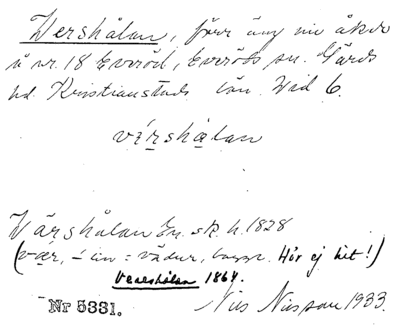 Wershålan, förr äng nu åker
å nr. 18 Everöd, Everöds sn. Gärds
hd. Kristianstads län. Wid 6.
vǽrshålan
Värshålan En. sk. h. 1828
(vær, – en = vädur, bagge. Hör ej hit!)
Vereshålan 1864.
Nr 5331.
Nils Nilsson 1933.